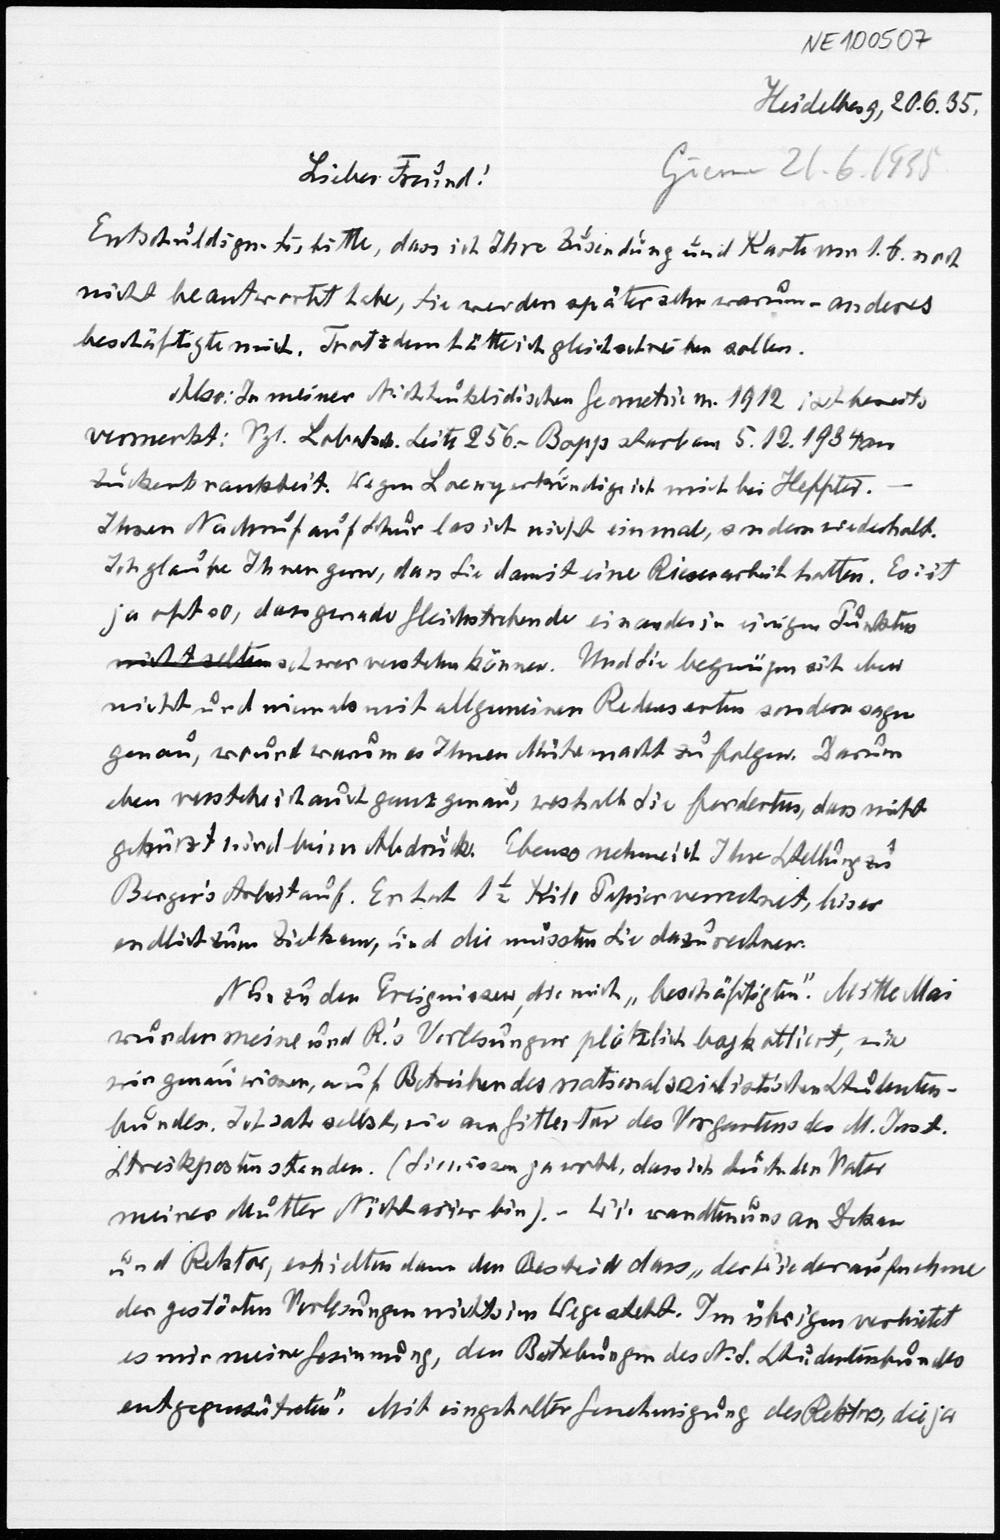 NE100507
Heidelberg, 20.6.35.
21.6.1935
Lieber Freund!
Entschuldigen Sie, bitte, dass ich Ihre Zusendung und Karte vom 1.6. noch
nicht beantwortet habe, Sie werden später sehn warum - anderes
beschäftigte mich. Trotzdem hätte ich gleich schreiben sollen.
Also: In meiner Nichteuklidischen Geometrie v. 1912 ist bereits
vermerkt: Vgl. Lobatsch. Seite 256. - Bopp starb am 5.12.1934 an
Zuckerkrankheit. Wegen Loewy erkundige ich mich bei Heffter. -
Ihren Nachruf auf Schur las ich nicht einmal, sondern wiederholt.
Ich glaube Ihnen gern, dass Sie damit eine Riesenarbeit hatten. Es ist
ja oft so, dass gerade Gleichstrebende einander in einigen Punkten
nicht selten schwer verstehn können. Und Sie begnügen sich eben
nicht und niemals mit allgemeinen Redensarten sondern sagen
genau, wo und warum es Ihnen Mühe macht zu folgen. Darum
eben verstehe ich auch ganz genau, weshalb Sie forderten, dass nicht
gekürzt wird beim Abdruck. Ebenso nehme ich Ihre Stellung zu
Berger's Arbeit auf. Er hat 1½ Kilo Papier verrechnet, bis er
endlich zum Ziel kam, und die müssten Sie dazu rechnen.
Nun zu den Ereignissen, die mich „beschäftigten". Mitte Mai
wurden meine und R.'s Vorlesungen plötzlich boykottiert, wie
wir genau wissen, auf Betreiben des nationalsozialistischen Studenten-
bundes. Ich sah selbst, wie am Gittertor des Vorgartens des M. Inst.
Streikposten standen. (Sie wissen ja wohl, dass ich durch den Vater
meiner Mutter Nichtarier bin). - Wir wandten uns an Dekan
und Rektor, erhielten dann den Bescheid dass „der Wiederaufnahme
der gestörten Vorlesungen nichts im Wege steht. Im übrigen verbietet
es mir meine Gesinnung, den Bestrebungen des N.S. Studentenbundes
entgegenzutreten". Mit eingeholter Genehmigung des Rektors, die ja